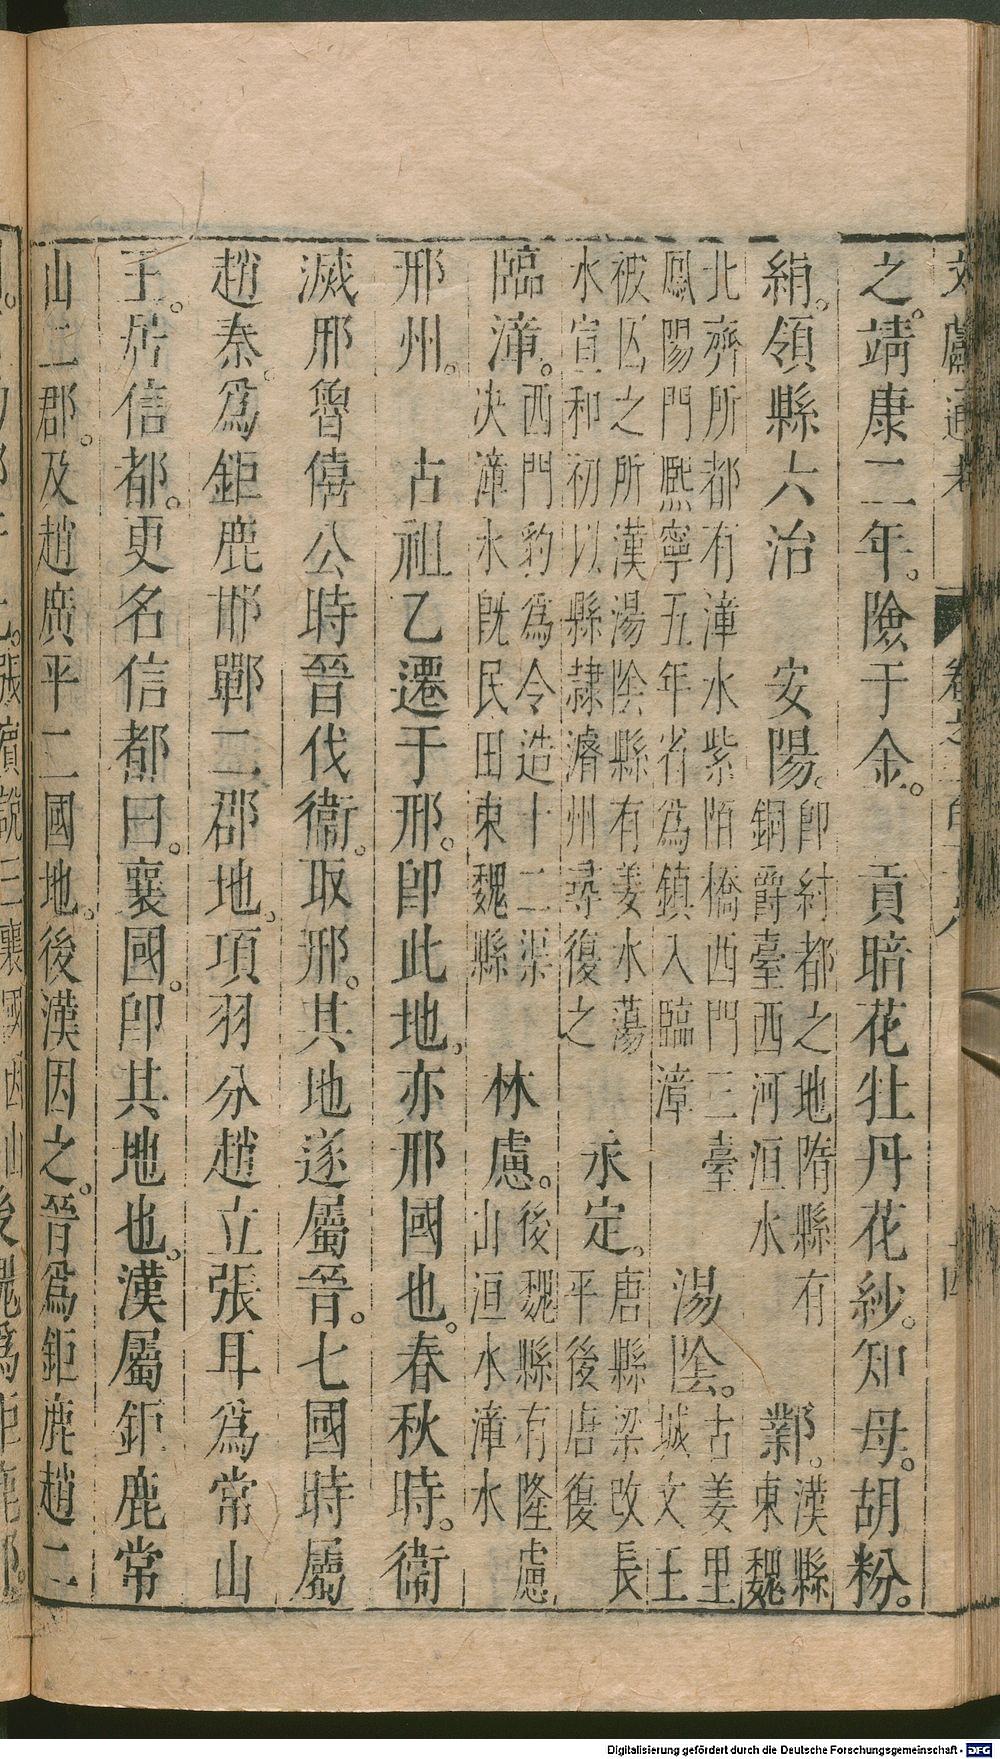 之。靖康二年。險于金。　貢暗花牡丹花紗。知母。胡粉。
絹。領縣六治　安陽。卽紂都之地隋縣有銅爵臺西河洹水　鄴。漢縣東魏
北齊所都有漳水紫陌橋西門三臺鳳陽門熈寧五年省爲鎮入臨漳　湯陰。古姜里城文王
被囚之所漢湯陰縣有姜水蕩水宣和初以縣隷濬州尋復之　永定。唐縣梁改長平後唐復
臨漳。西門豹爲令造十二渠决漳水旣民田東魏縣　林慮。後魏縣有隆慮山洹水漳水
邢州。　古祖乙遷于邢。卽此地。亦邢國也。春秋時。衞
滅邢魯僖公時晉伐衞。取邢。其地遂屬晉。七國時屬
趙秦。爲鉅鹿邯鄲二郡地。項羽分趙立張耳爲常山
王。居信都。更名信都曰。襄國。卽其地也。漢屬鉅鹿常
山二郡。及趙廣平二國地。後漢因之。晉爲鉅鹿趙二
Digitalisierung gefördert durch die Deutsche Forschungsgemeinschaft - DFG